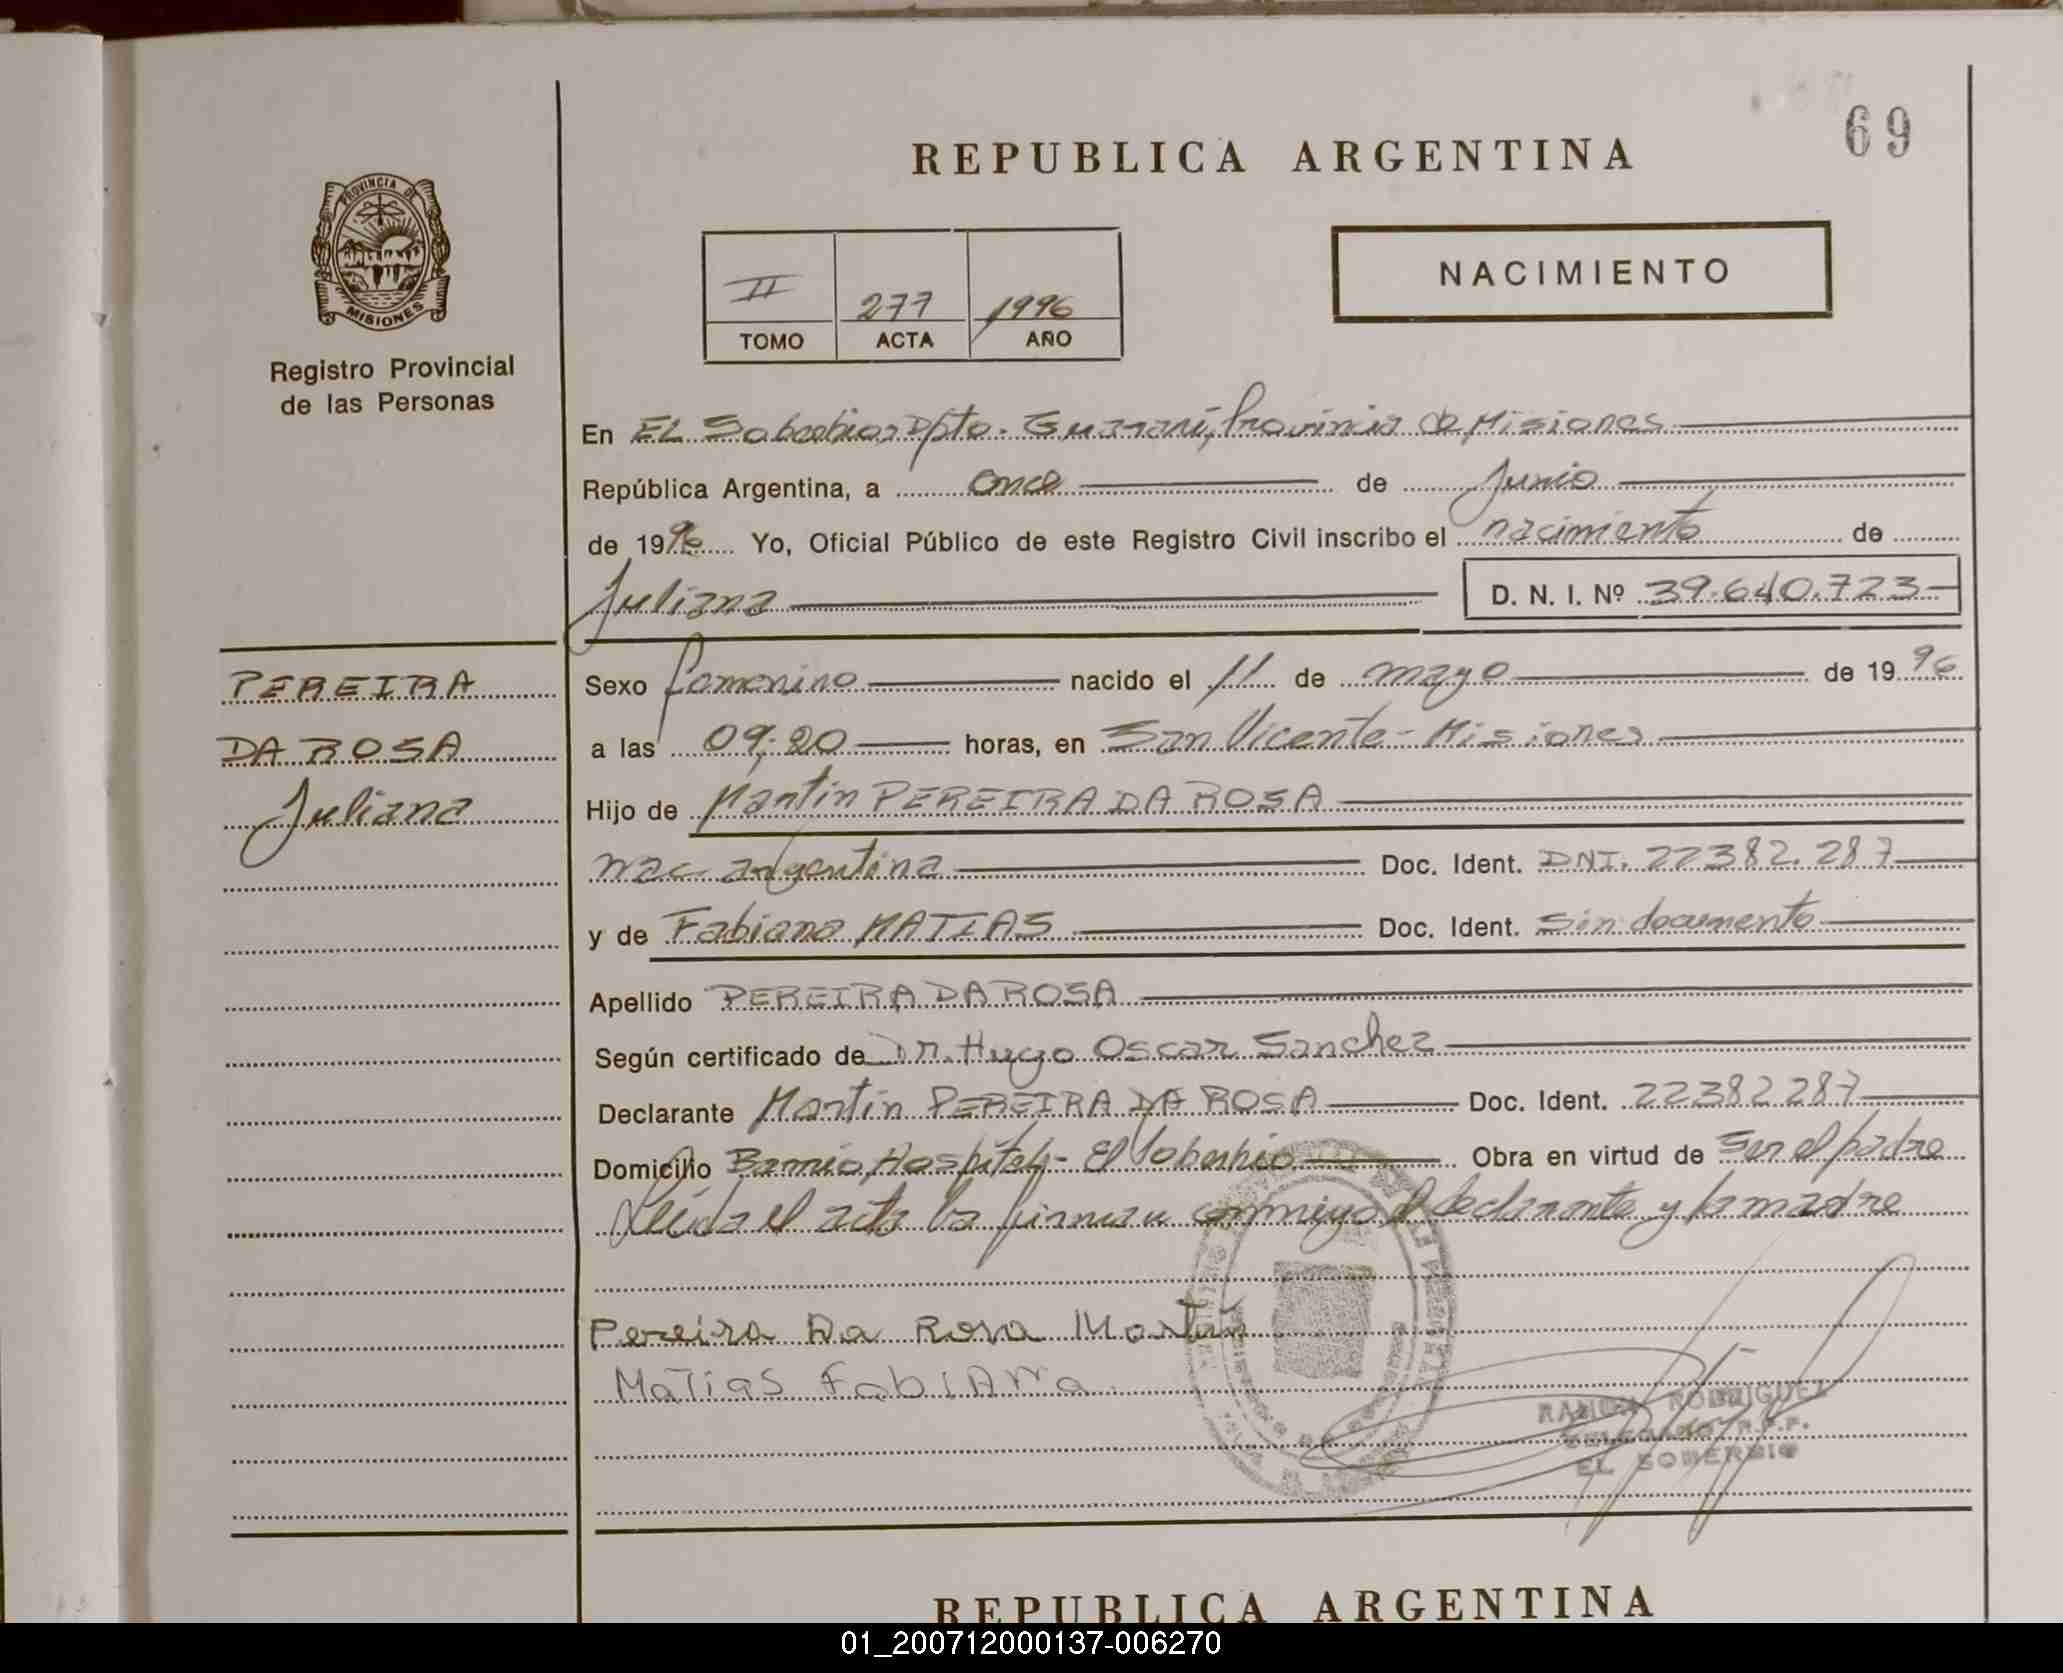 69
REPUBLICA ARGENTINA
PROVINCIA DE
MISIONES
Registro Provincial
de las Personas
II 277 1996
TOMO ACTA AÑO
NACIMIENTO
En EL Soberbio, Dpto. Guaraní, Provincia de Misiones
República Argentina, a once de Junio
de 1996 Yo, Oficial Público de este Registro Civil inscribo el nacimiento de
Juliana D. N. I. Nº 39.640.723
PEREIRA
DA ROSA
Juliana
Sexo femenino nacido el 11 de mayo de 1996
a las 09,20 horas, en San Vicente - Misiones
Hijo de Martín PEREIRA DA ROSA
nac. argentina Doc. Ident. DNI. 22382.287
y de Fabiana MATIAS Doc. Ident. Sin documento
Apellido PEREIRA DA ROSA
Según certificado de Dr. Hugo Oscar Sanchez
Declarante Martín PEREIRA DA ROSA Doc. Ident. 22382287
Domicilio Barrio Hospital - El Soberbio Obra en virtud de Ser el padre
Leída el acta la firman conmigo el declarante y la madre
Pereira Da Rosa Martín
MaTias FabiAna
RAMON RODRIGUEZ
DELEGADO R.P.P.
EL SOBERBIO
REPUBLICA ARGENTINA
01_200712000137-006270